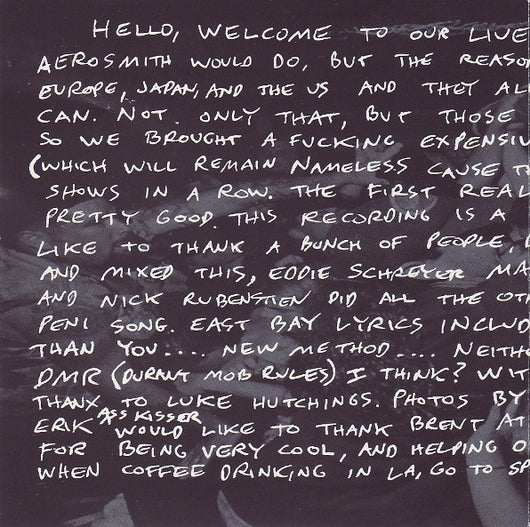 HELLO, WELCOME TO OUR LIVE
AEROSMITH WOULD DO, BUT THE REASO
EUROPE, JAPAN, AND THE US AND THEY AL
CAN. NOT. ONLY THAT, BUT THOSE
SO WE BROUGHT A FUCKING EXPENSIV
(WHICH WILL REMAIN NAMELESS CAUSE T
SHOWS IN A ROW. THE FIRST REAL
PRETTY GOOD. THIS RECORDING IS A
LIKE TO THANK A BUNCH OF PEOPLE,
AND MIXED THIS, EDDIE SCHREYER MA
AND NICK RUBENSTIEN DID ALL THE OT
PENI SONG. EAST BAY LYRICS INCLUD
THAN YOU.... NEW METHOD.... NEITH
DMR (DURANT MOB RULES) I THINK? WIT
THANX TO LUKE HUTCHINGS. PHOTOS BY
ASS KISSER
ERIK WOULD LIKE TO THANK BRENT AT
FOR BEING VERY COOL, AND HELPING O
WHEN COFFEE DRINKING IN LA, GO TO SP